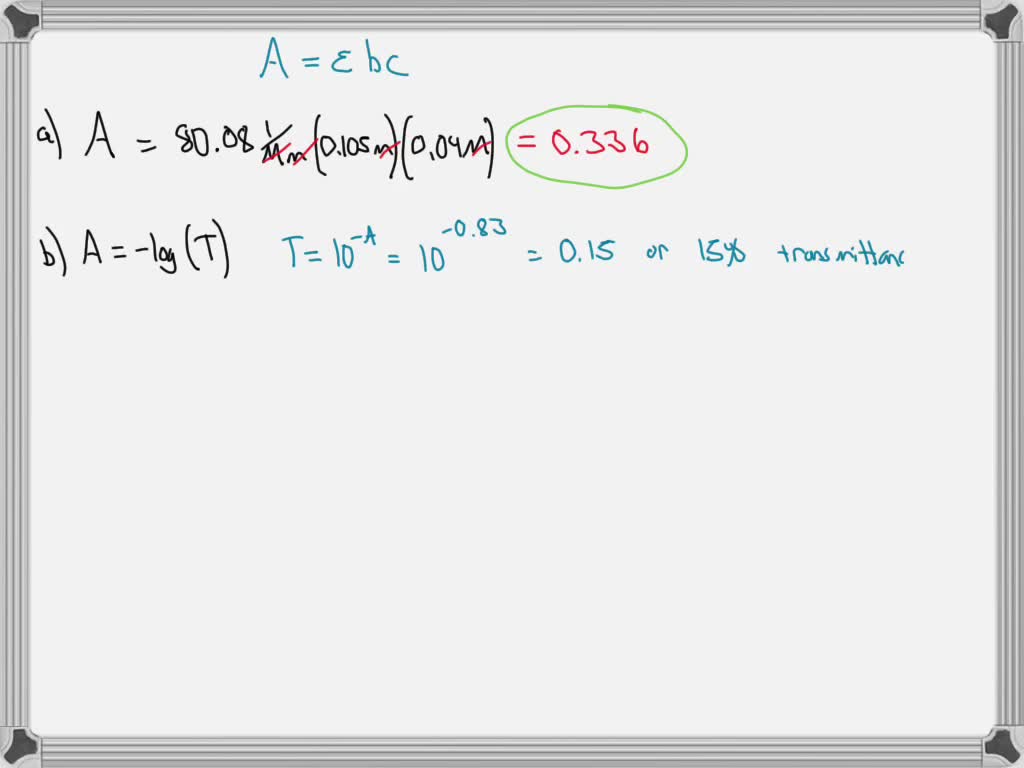 A = εbc
a) A = 80.08 1/Mm (0.105m)(0.04M) = 0.336
b) A = -log(T) T = 10^-A = 10^-0.83 = 0.15 or 15% transmittanc